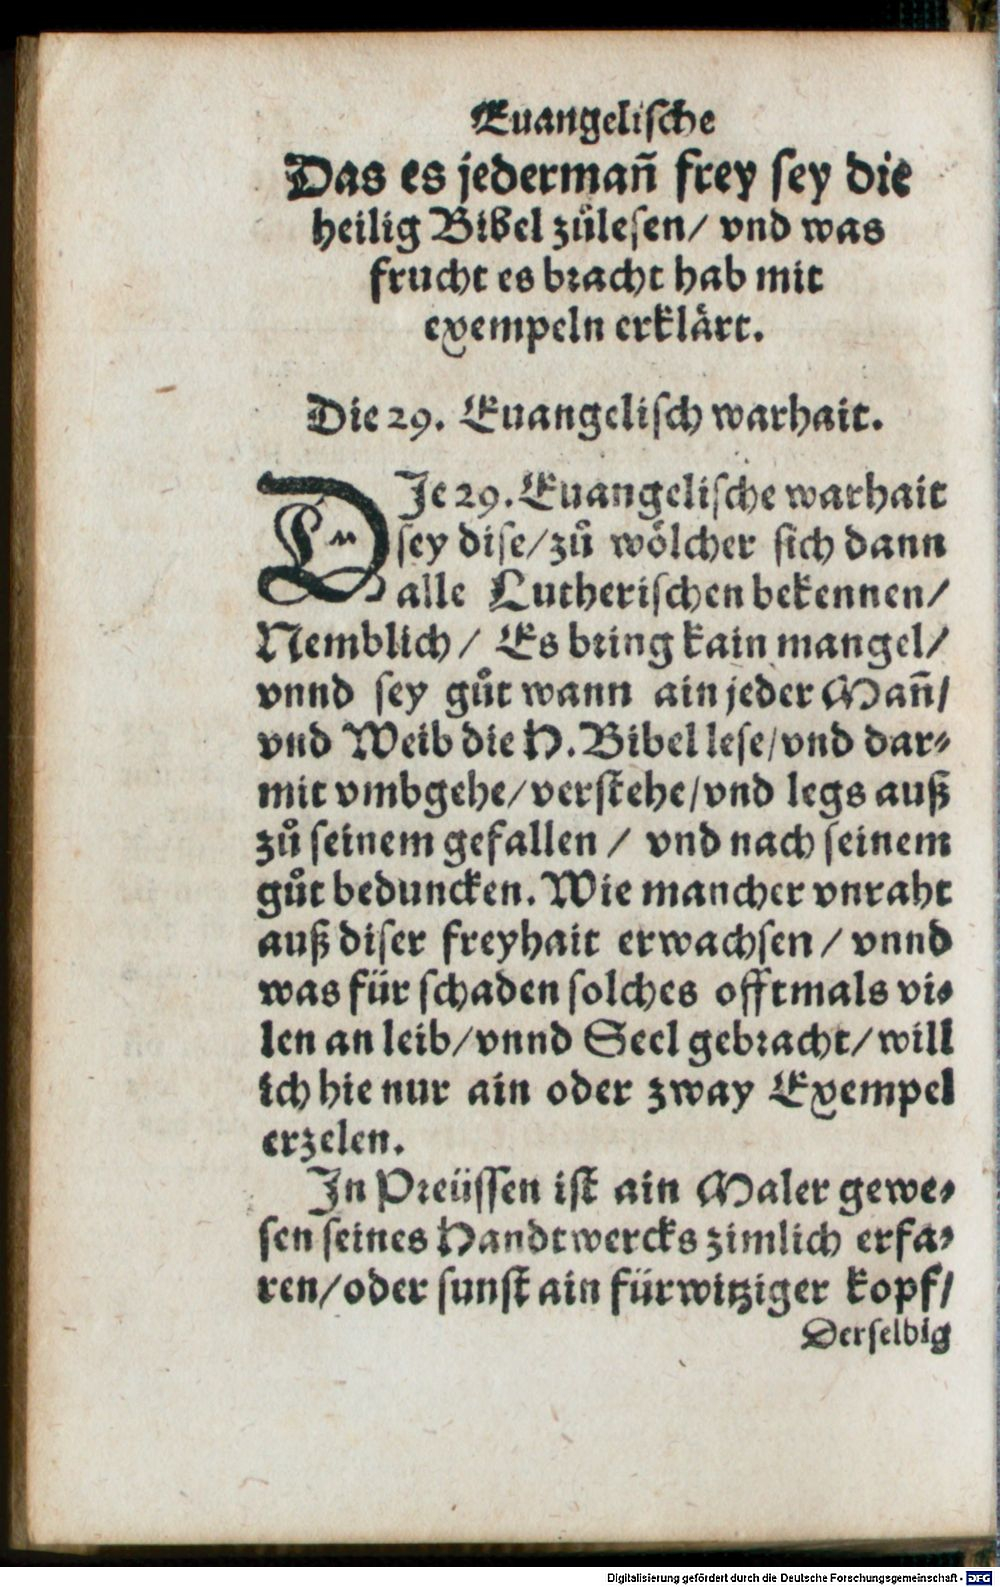 Euangelische
Das es jedermañ frey sey die
heilig Bibel zůlesen/ vnd was
frucht es bracht hab mit
exempeln erklärt.
Die 29. Euangelisch warhait.
DIe 29. Euangelische warhait
sey dise/zů wölcher sich dann
alle Lutherischen bekennen/
Nemblich/ Es bring kain mangel/
vnnd sey gůt wann ain jeder Mañ/
vnd Weib die H. Bibel lese/vnd dar⸗
mit vmbgehe/verstehe/vnd legs auß
zů seinem gefallen / vnd nach seinem
gůt beduncken. Wie mancher vnraht
auß diser freyhait erwachsen / vnnd
was für schaden solches offtmals vi⸗
len an leib/vnnd Seel gebracht/will
ich hie nur ain oder zway Exempel
erzelen.
In Preüssen ist ain Maler gewe⸗
sen seines Handtwercks zimlich erfa⸗
ren/oder sunst ain fürwitziger kopf/
Derselbig
Digitalisierung gefördert durch die Deutsche Forschungsgemeinschaft - DFG